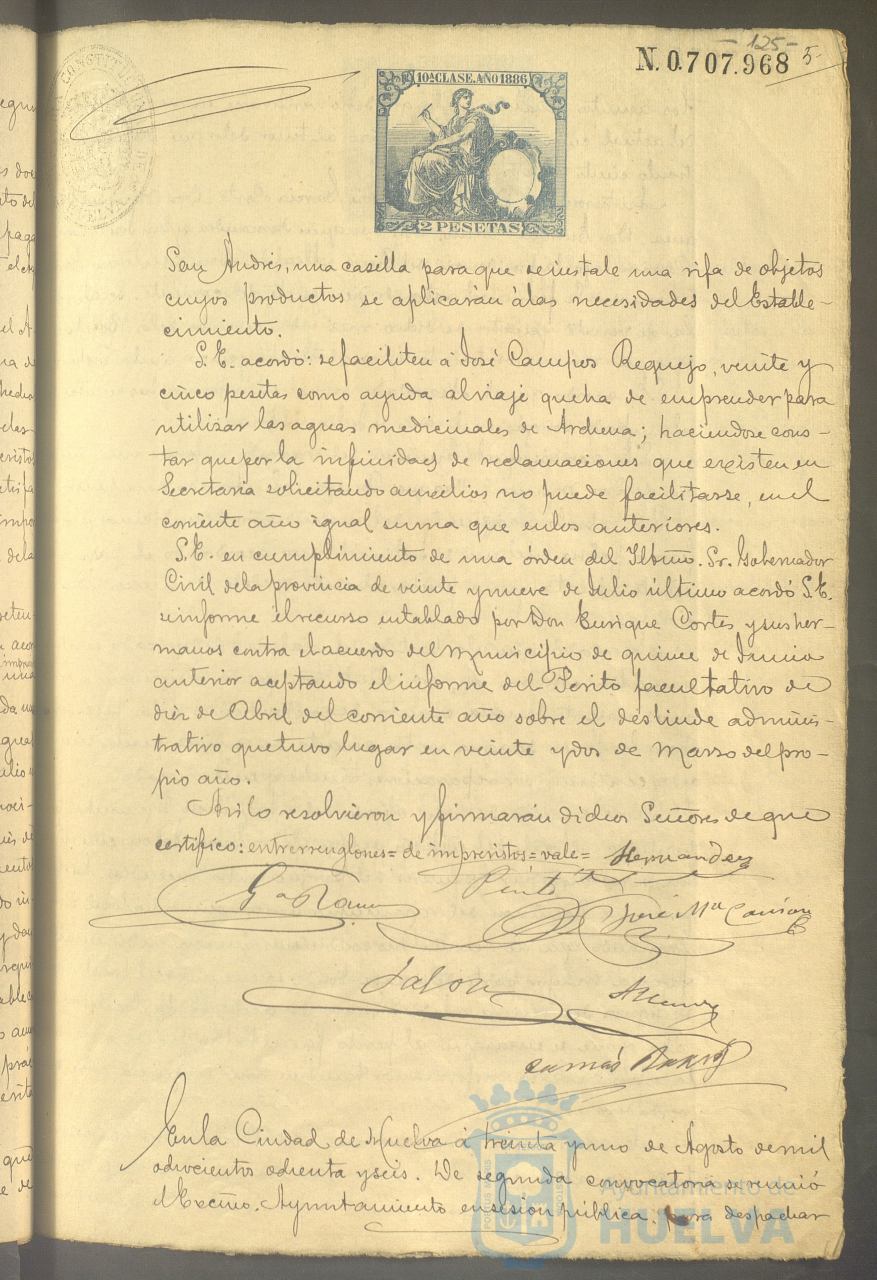 -125-
N. 0.707.968 5-
CONSTITU
10ª CLASE. AÑO 1886
2 PESETAS
San Andrés, una casilla para que se instale una rifa de objetos
cuyos productos se aplicarán á las necesidades del Estable-
cimiento.
S. E. acordó: se faciliten á José Campos Requejo, veinte y
cinco pesetas como ayuda al viaje que ha de emprender para
utilizar las aguas medicinales de Archena; haciendose cons-
tar que por la infinidad de reclamaciones que existen en
Secretaria solicitando ausilios no puede facilitarse, en el
corriente año igual suma que en los anteriores.
S. E. en cumplimiento de una órden del Iltmo. Sr. Gobernador
Civil de la provincia de veinte y nueve de Julio último acordó S. E.
se informe el recurso entablado por Don Enrique Cortes y sus her-
manos contra el acuerdo del Municipio de quince de Junio
anterior aceptando el informe del Perito facultativo de
diez de Abril del corriente año sobre el deslinde adminis-
trativo que tuvo lugar en veinte y dos de Marzo del pro-
pio año.
Asi lo resolvieron y firmarán dichos Señores de que
certifico: entrerrenglones = de imprevistos = vale = Hernandez
Gª Ramos
Pinto
José Mª
Jalon
En la Ciudad de Huelva á treinta y uno de Agosto de mil
ochocientos ochenta y seis. De segunda convocatoria se reunió
el Excmo. Ayuntamiento en sesión pública, para despachar
Ayuntamiento de
HUELVA